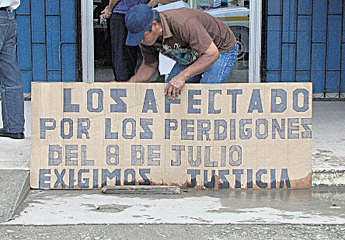 LOS AFECTADO
POR LOS PERDIGONES
DEL 8 DE JULIO
EXIGIMOS JUSTICIA